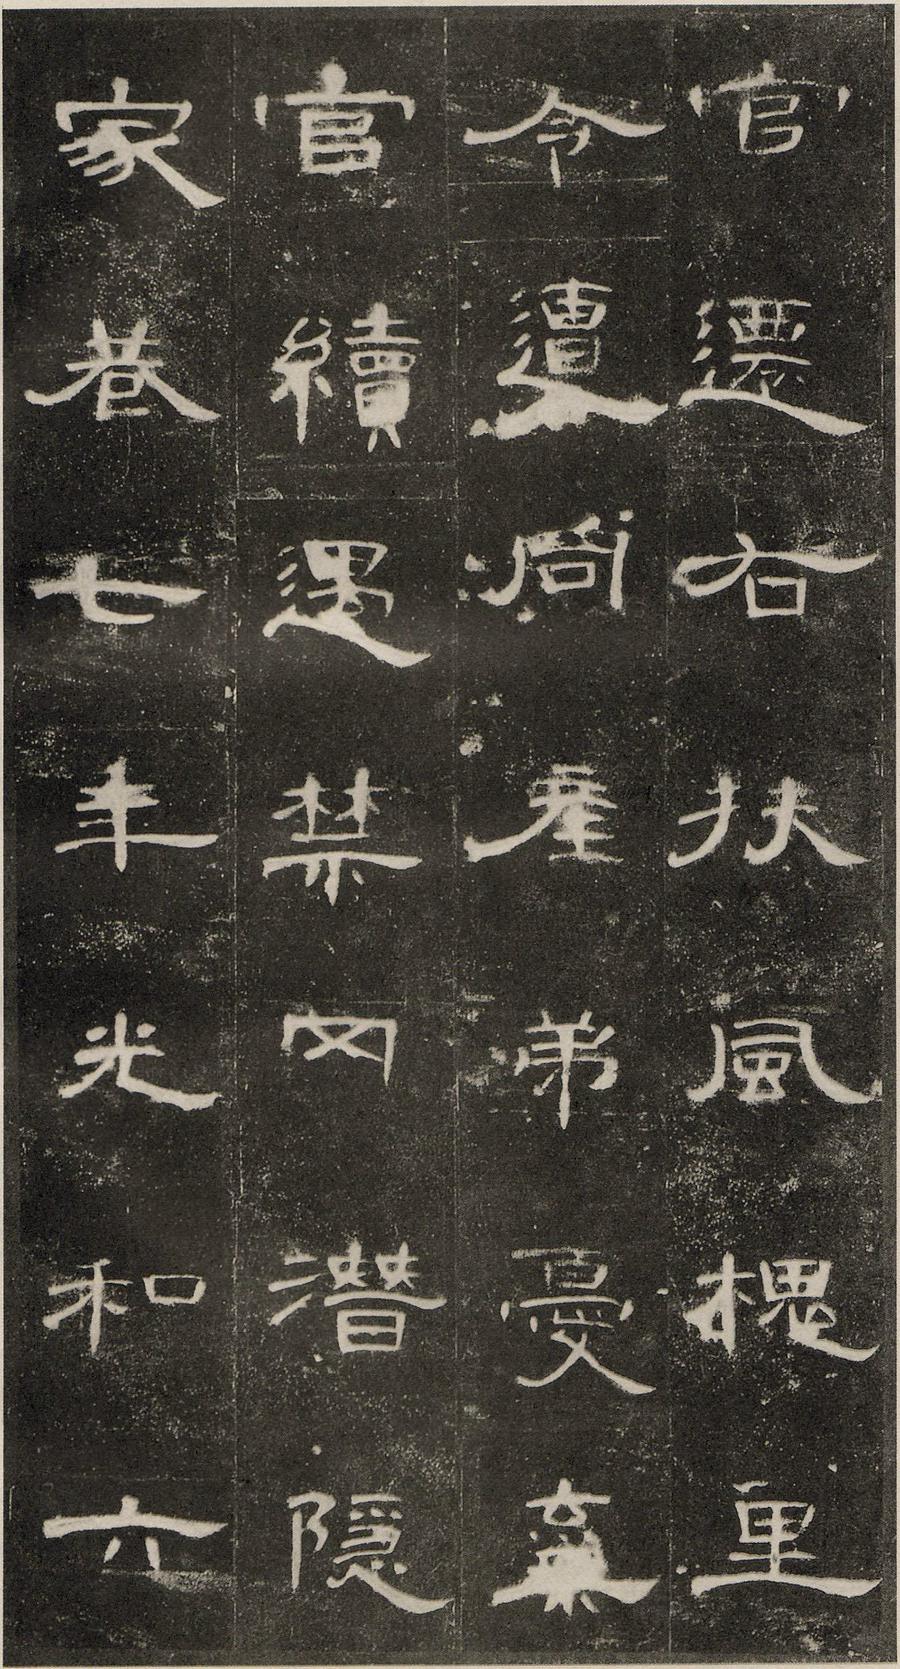 官還右扶風槐里
令遭同產弟憂棄
官續遇禁网潛隱
家巷七年光和六